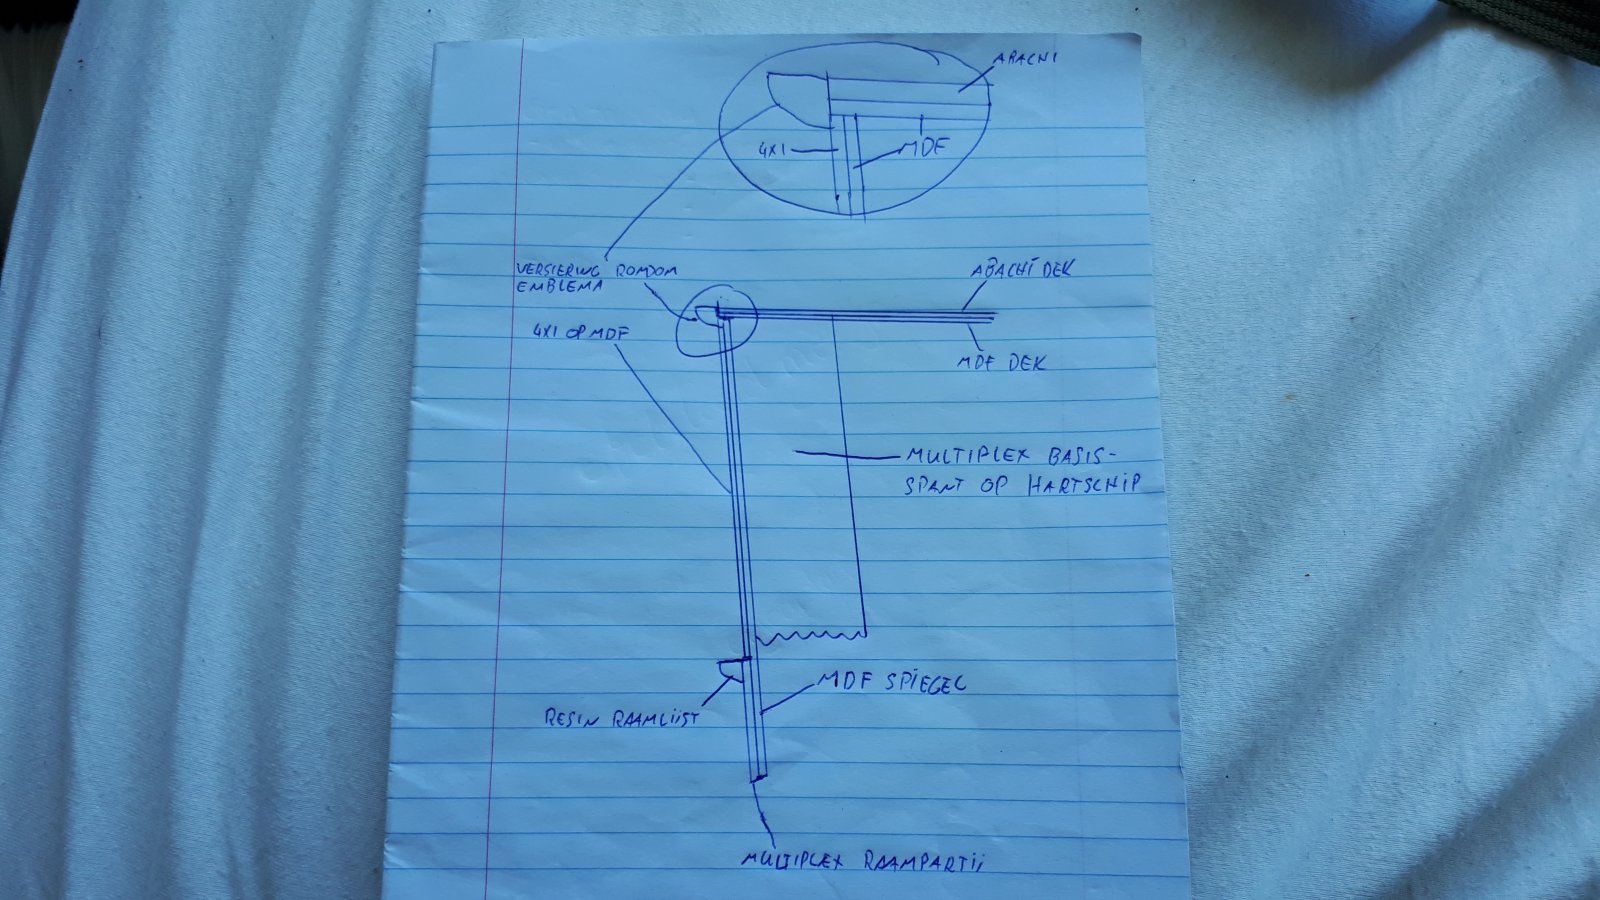 ABACHI
4X1
MDF
VERSIERING RONDOM
EMBLEMA
ABACHI DEK
4X1 OP MDF
MDF DEK
MULTIPLEX BASIS-
SPANT OP HARTSCHIP
MDF SPIEGEL
RESIN RAAMLIJST
MULTIPLEX RAAMPARTIJ